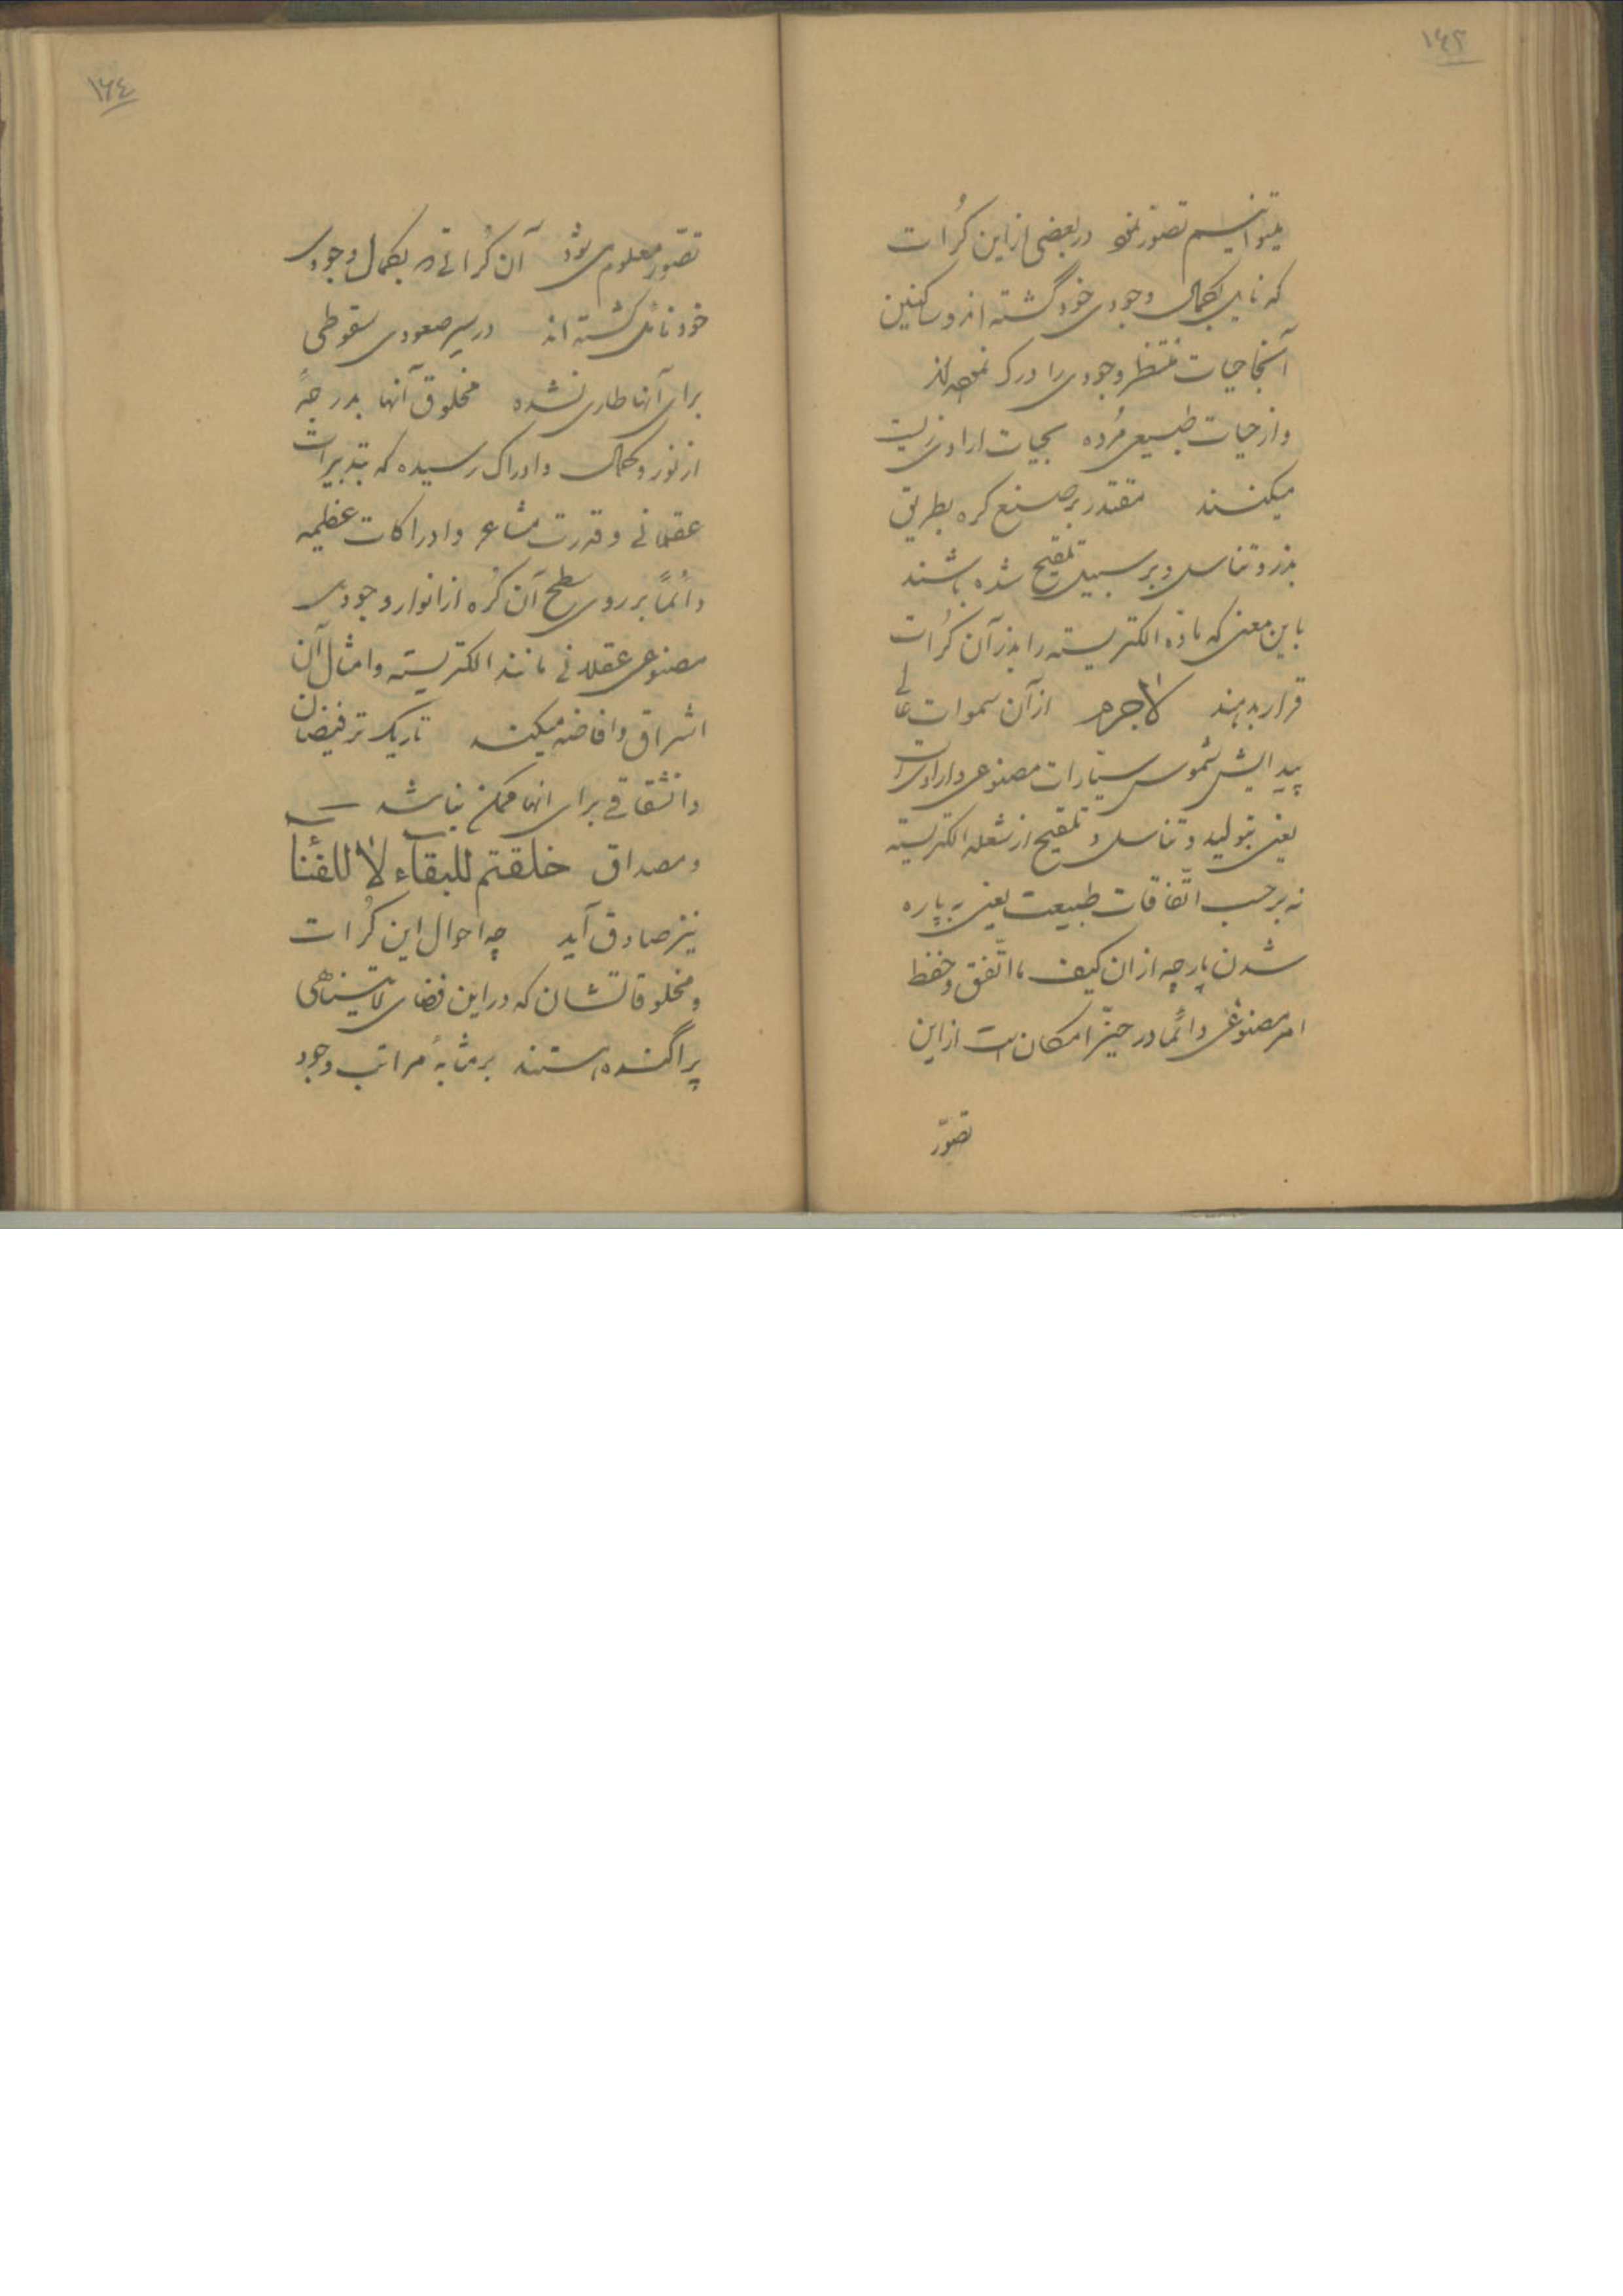 ۱۶۳
میتوانیم تصور نمود در بعضی از این کُرات
که نایل بکمال وجودی خود گشته اند و ساکنین
آنجا حیات منتظر وجودی را درک نموده اند
و از حیات طبیعی مُرده بحیات ارادی زیست
میکنند مقتدر بر صنع کره بطریق
بذر و تناسل و بر سبیل تلقیح شده باشند
باین معنی که ماده الکتریسیته را بذر آن کُرات
قرار بدهند لاجرم از آن سموات عالی
پیدایش شموس سیارات مصنوعی و ارادی است
یعنی بتولید و تناسل و تلقیح از شعله الکتریسیته
نه بر حسب اتّفاقات طبیعت یعنی به پاره
شدن پارچه از ان کیف ما اتّفق و حفظ
امر مصنوعی دائماً در حیّز امکان است از این
تصوّر
۱۶۴
تصّور معلوم می شود آن کُراتی که بکمال وجودی
خود نائل گشته اند در سیر صعودی سقوطی
برای آنها طاری نشده مخلوق آنها بدرجهٔ
از نور و کمال و ادراک رسیده که بتدبیرات
عقلانی و قدرت مشاعر و ادراکات عظیمه
دائماً بر روی سطح آن کُره از انوار وجودی
مصنوعی عقلانی مانند الکتریسیته و امثال آن
اشراق و افاضه میکنند تاریک تر فیضان
و انشقاقی برای انها ممکن نباشد
و مصداق خلقتم للبقاء لا للفنا
نیز صادق آید چه احوال این کُرات
و مخلوقاتشان که در این فضای لایتناهی
پراگنده هستند بر مثابهٔ مراتب وجود